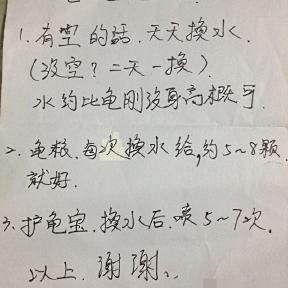 1. 有空的話,天天換水.
(沒空?二天一換)
水約比龟刚沒身高概可.
2. 龟粮.每次换水给,約5~8颗.
就好.
3. 护龟宝.換水后.喷5~7次.
以上.謝謝..